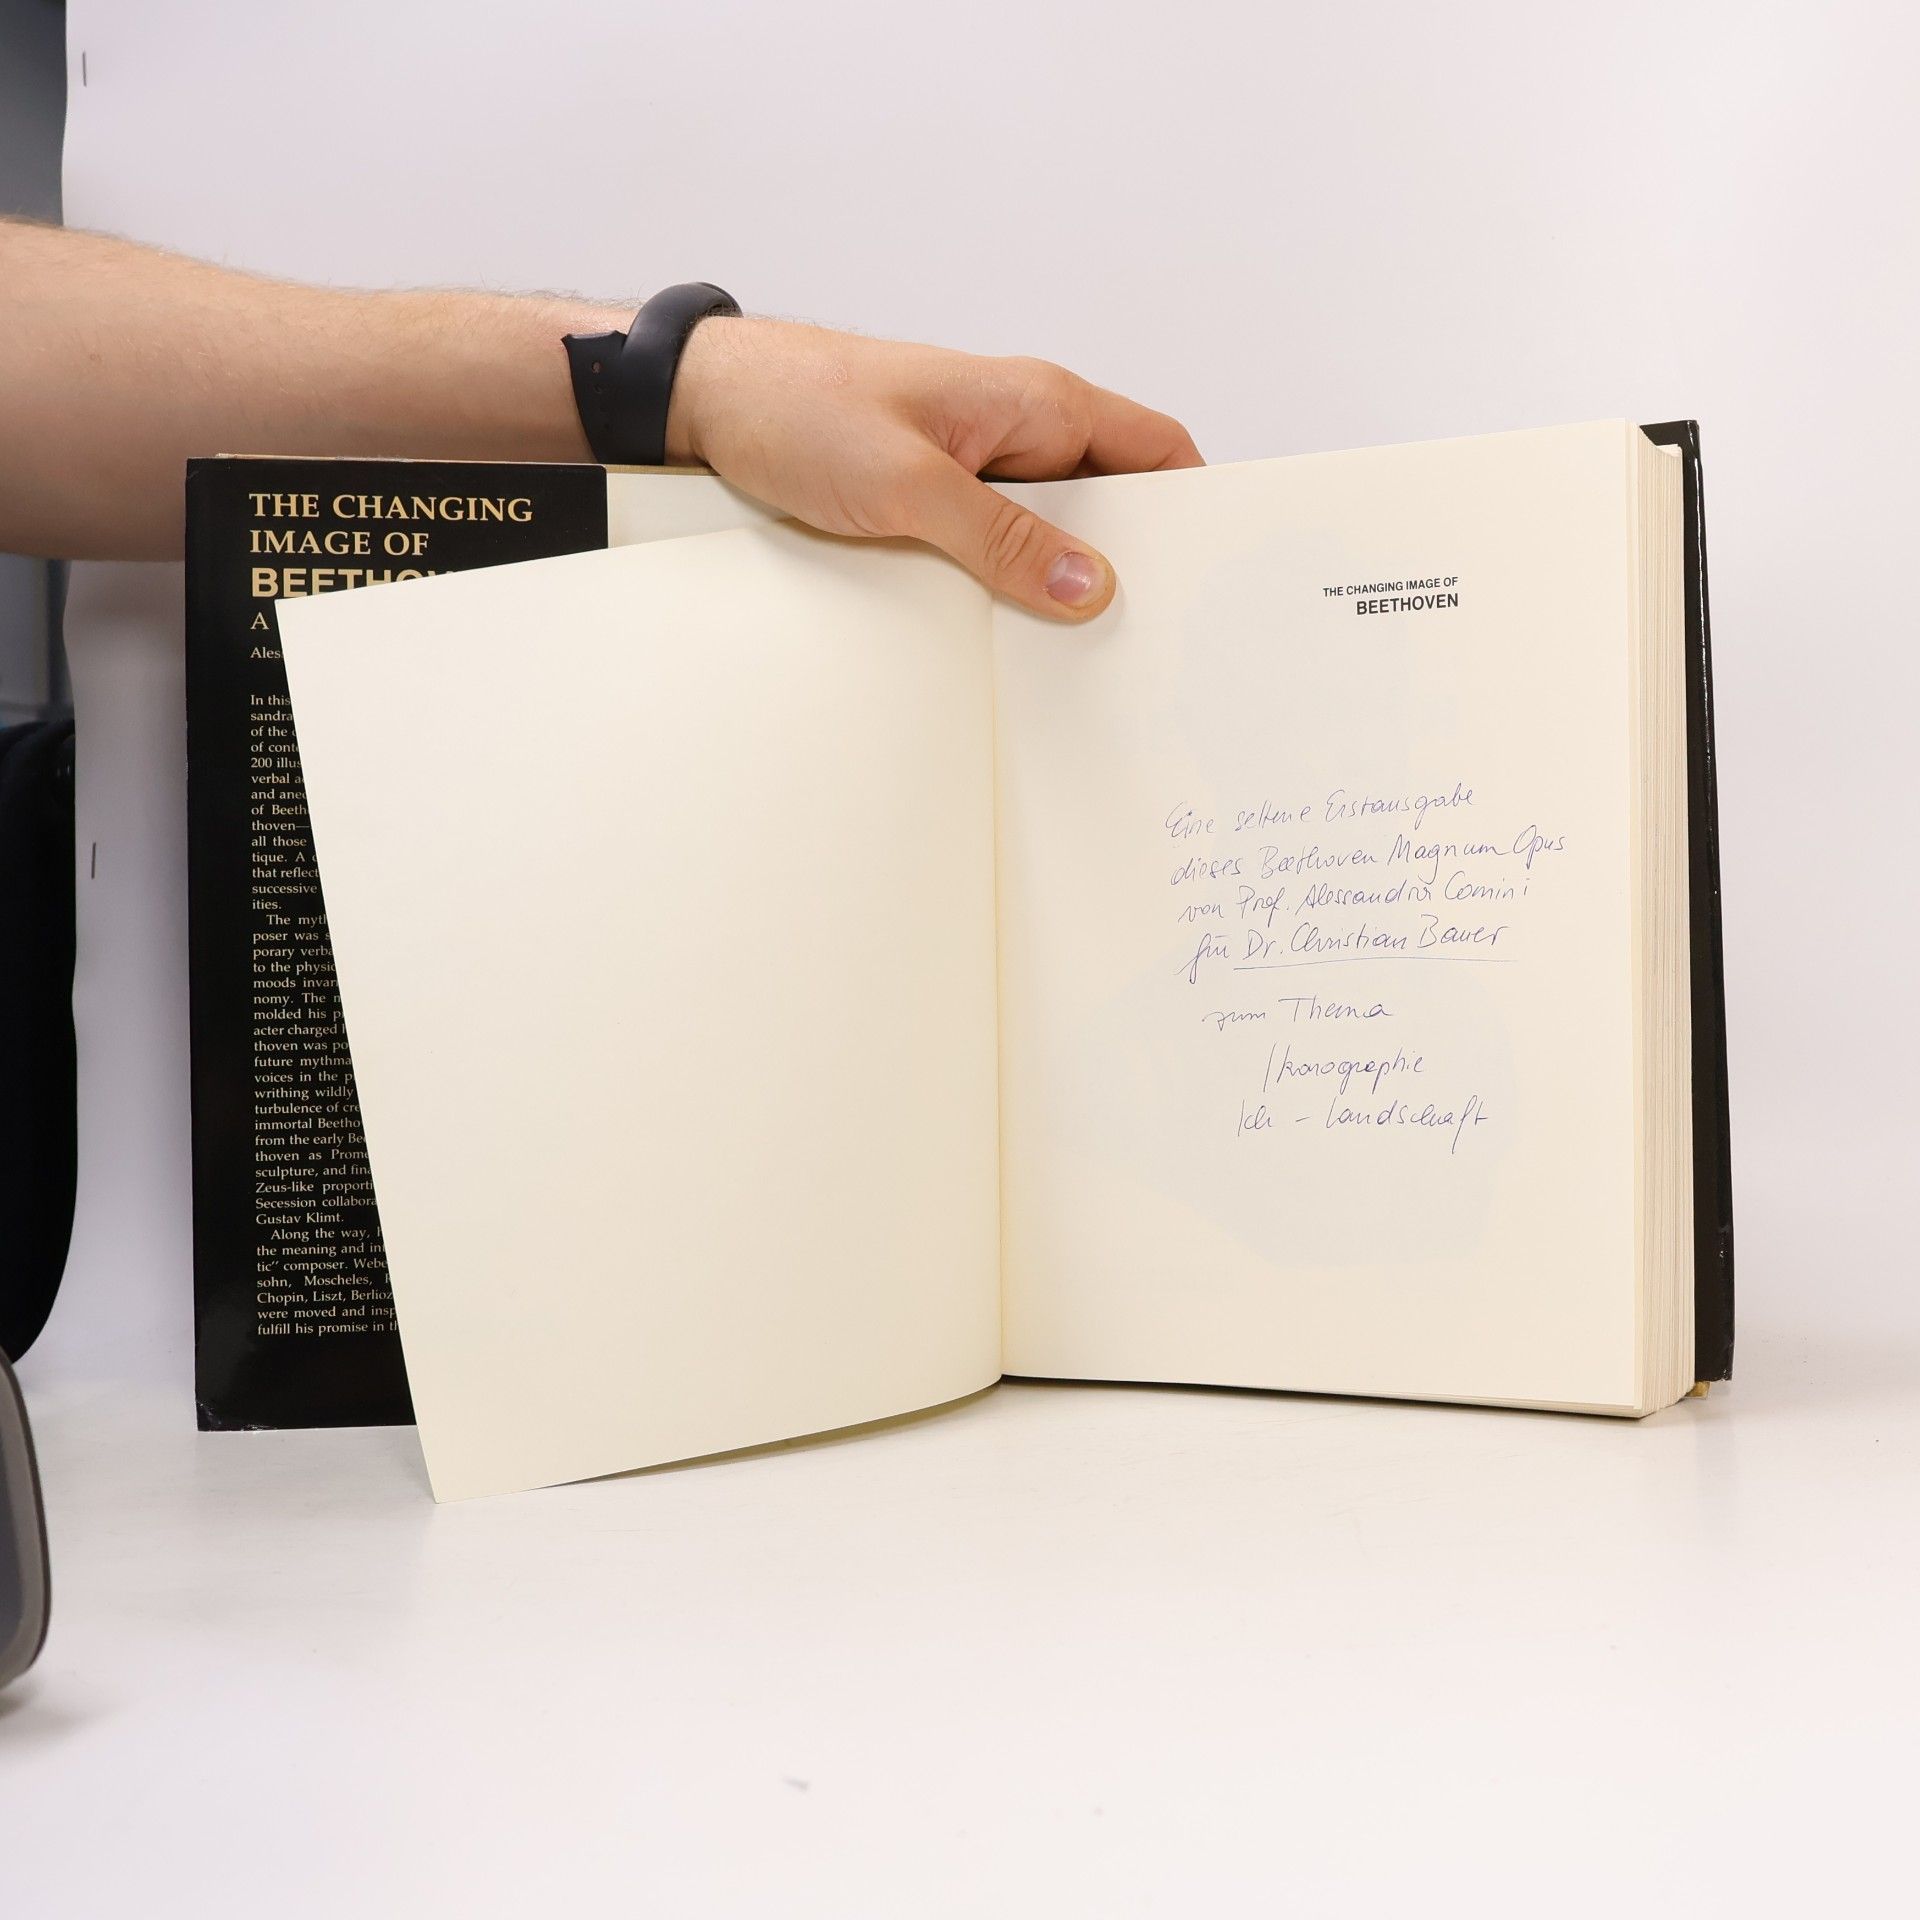 THE CHANGING
IMAGE OF
A
In this
of the
200 illus
verbal
of Beeth
thoven—
all those
tique. A
that reflect
successive
ities.
The myth
poser was
porary verba
to the physic
moods invari
nomy. The
molded his
acter charged
thoven was po
future mythma
voices in the
writhing wildly
turbulence of cre
immortal Beetho
from the early Bee
thoven as Prome
sculpture, and fina
Zeus-like proporti
Secession collabora
Gustav Klimt.
Along the way,
the meaning and in
tic" composer. Webe
sohn, Moscheles,
Chopin, Liszt, Berlioz
were moved and insp
fulfill his promise in th
THE CHANGING IMAGE OF
BEETHOVEN
Eine seltene Erstausgabe
dieses Beethoven Magnum Opus
von Prof. Alessandra Comini
für Dr. Christian Bauer
zum Thema
Ikonographie
Ich - Landschaft